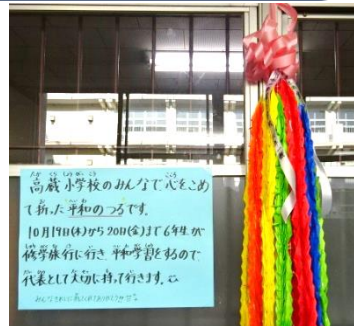 高蔵小学校のみんなで心をこめ
て折った平和のつるです。
10月19日(木)から20日(金)まで6年生が
修学旅行に行き、平和学習をするので
代表として大切に持って行きます。